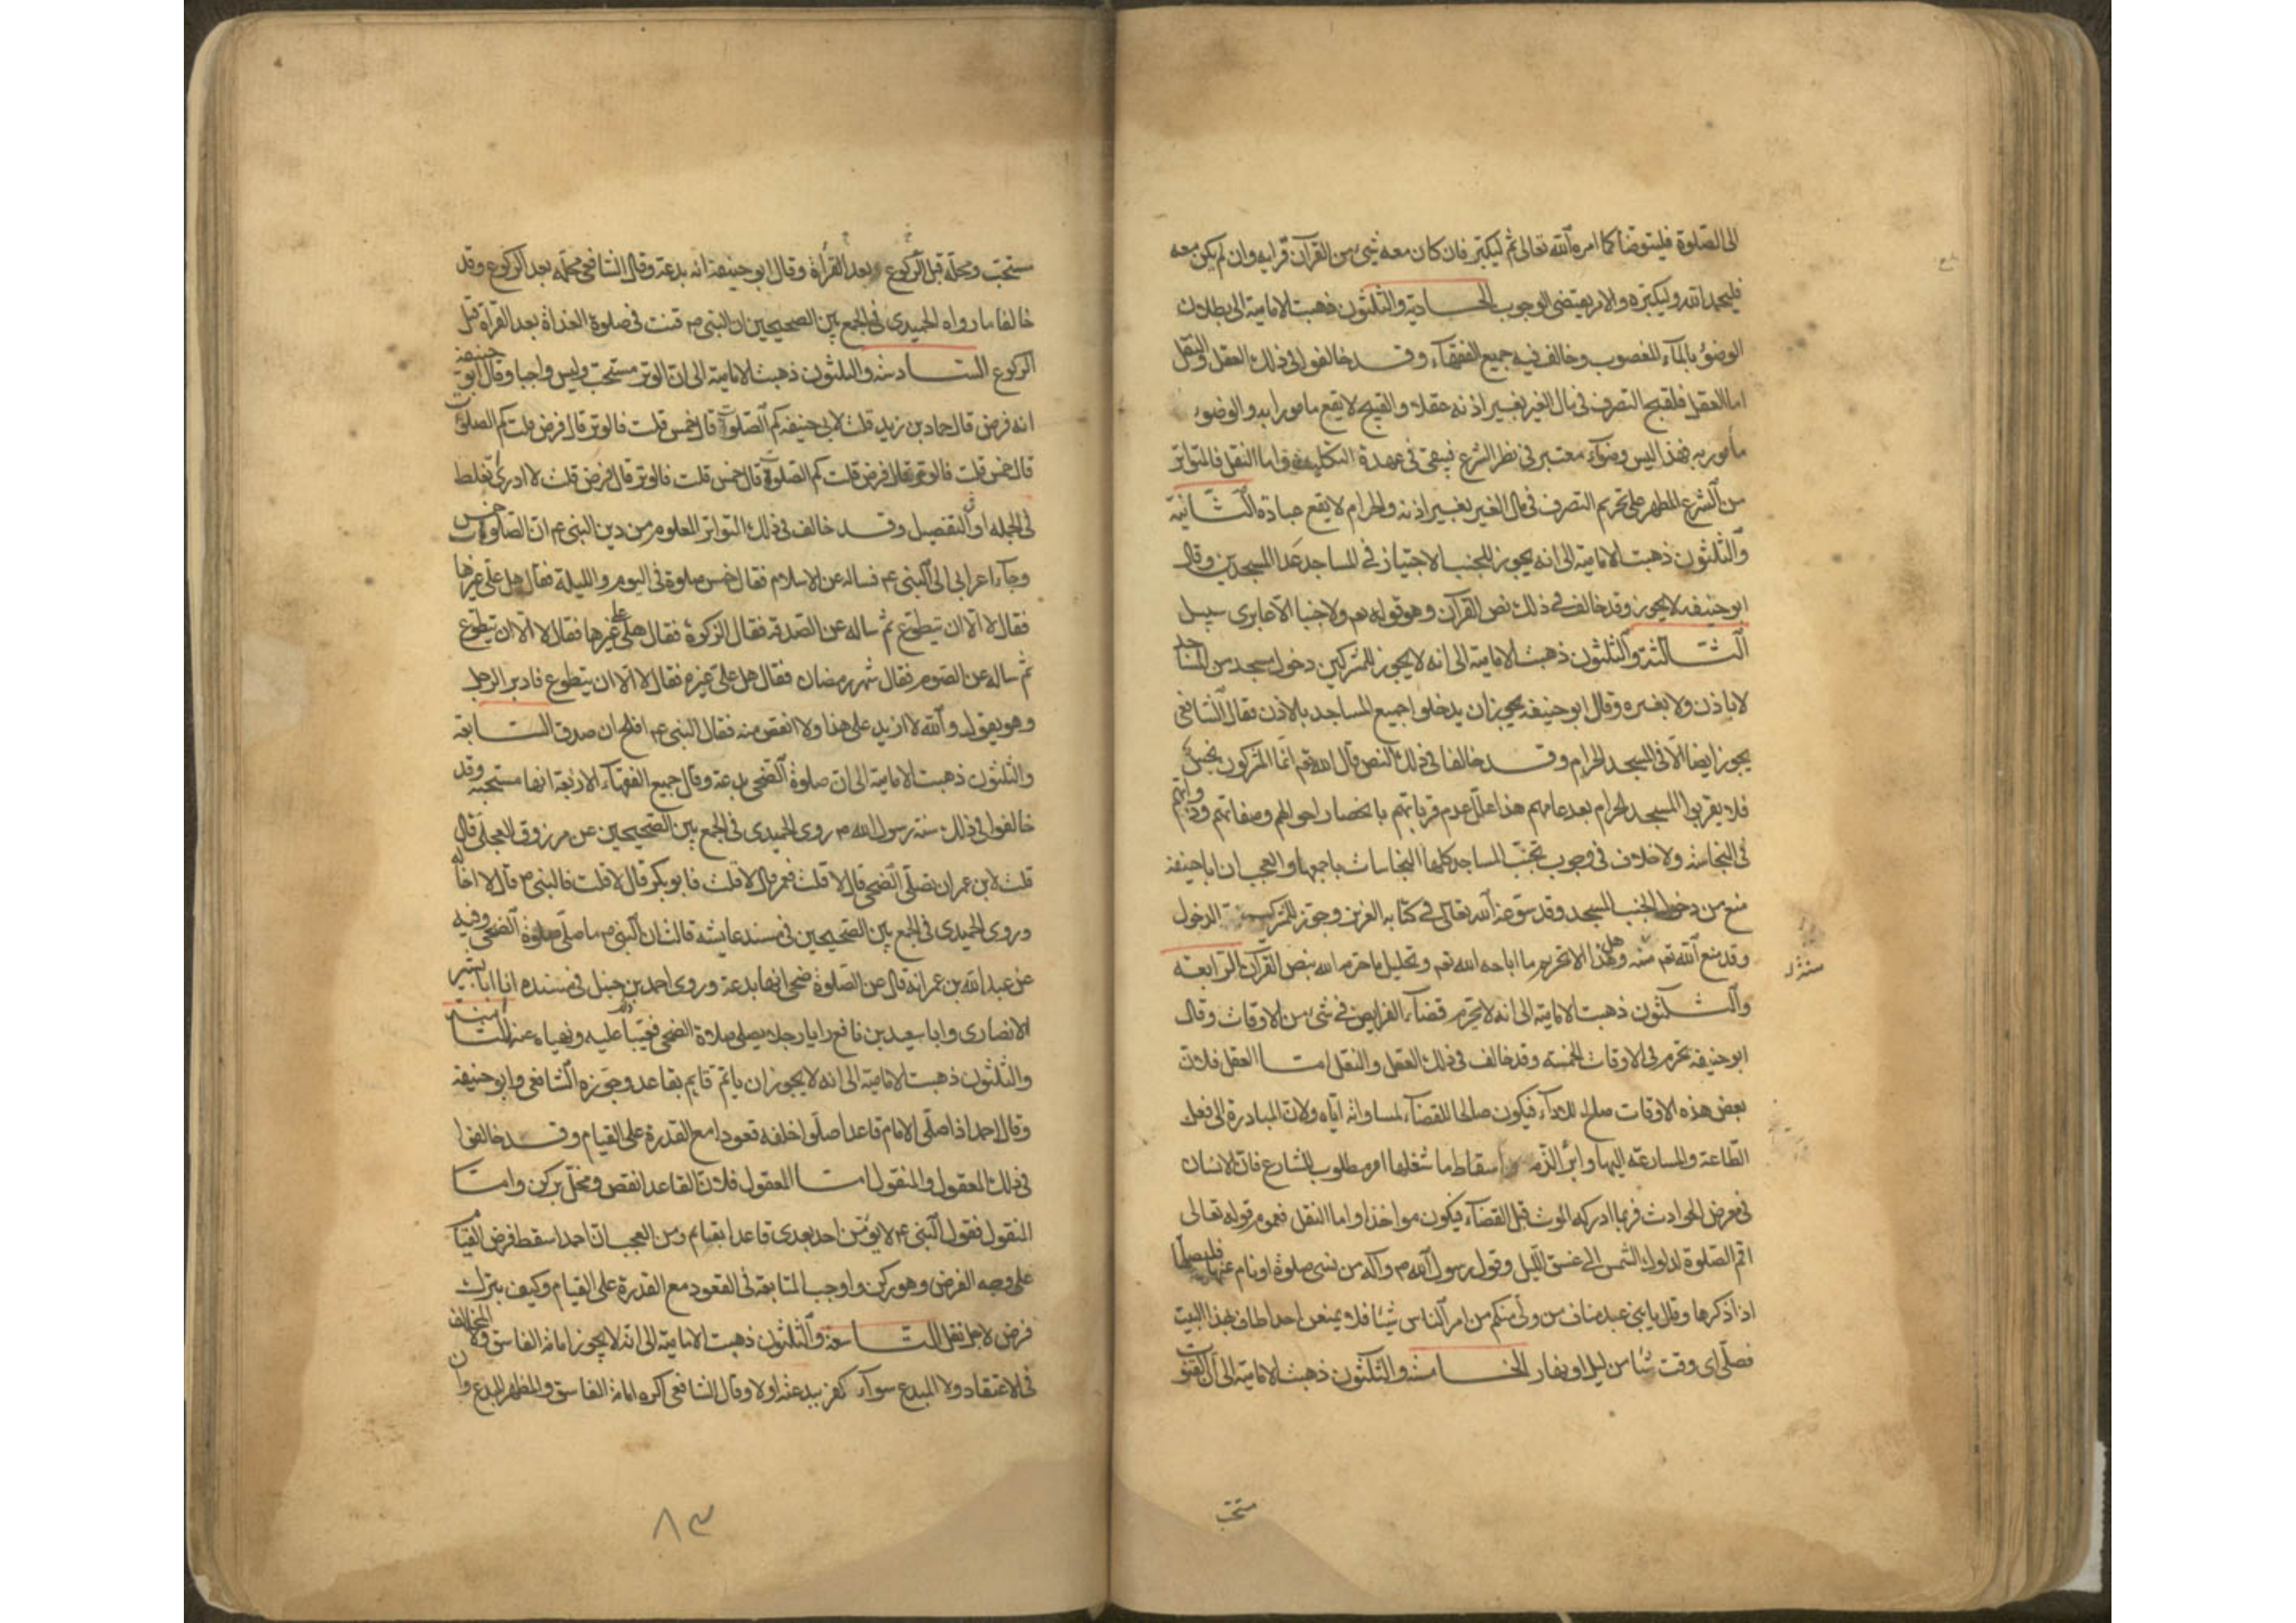 الى الصلوة فليتوضا كما امره الله تعالى ثم ليكبر فان كان معه شىء من القرآن قرا به وان لم يكن معه
فليحمد الله وليكبره والامر يقتضى الوجوب الحادية والثلثون ذهبت الامامية الى بطلان
الوضوء بالماء المغصوب وخالف فيه جميع الفقهاء وقد خالفوا فى ذلك العقل والنقل
اما العقل فلقبح التصرف فى مال الغير بغير اذنه عقلا والقبيح لا يقع مامورا به والوضوء
مأمور به فهذا ليس وضوء معتبر فى نظر الشرع فيبقى فى عهدة التكليف واما النقل فالمتواتر
من الشرع المطهر على تحريم التصرف فى مال الغير بغير اذنه والحرام لا يقع عبادة الثانية
والثلثون ذهبت الامامية الى انه يجوز للجنب الاجتياز فى المساجد عدا المسجدين وقال
ابو حنيفه لا يجوز وقد خالف فى ذلك نص القرآن وهو قوله تعم ولا جنبا الا عابرى سبيل
الثالثة والثلثون ذهبت الامامية الى انه لا يجوز للمشركين دخول مسجد من المساجد
لا باذن ولا بغيره وقال ابو حنيفه يجوز ان يدخلوا جميع المساجد بالاذن وقال الشافعى
يجوز ايضا الا فى المسجد الحرام وقد خالفا فى ذلك النص قال الله تعم انما المشركون نجس
فلا يقربوا المسجد الحرام بعد عامهم هذا علل عدم قرباتهم بانحصار احوالهم وصفاتهم وذواتهم
فى النجاسة ولا خلاف فى وجوب تجنب المساجد كلها النجاسات باجمعها والعجب ان ابا حنيفه
منع من دخول الجنب المسجد وقد سوغه الله تعالى فى كتابه العزيز وجوز للمشركين الدخول
وقد منع الله تعم منه وهل هذا الا تحريم ما اباحه الله تعم وتحليل ما حرمه الله بنص القرآن الرابعة
والثلثون ذهبت الامامية الى انه لا تحرم قضاء الفرايض فى شىء من الاوقات وقال
ابو حنيفه تحرم فى الاوقات الخمسة وقد خالف فى ذلك العقل والنقل اما العقل فلان
بعض هذه الاوقات صلح للاداء فيكون صالحا للقضاء لمساواته اياه ولان المبادرة الى فعل
الطاعة والمسارعة اليها وابراء الذمه واسقاط ما شغلها امر مطلوب للشارع فان الانسان
فى معرض الحوادث فربما ادركه الموت قبل القضاء فيكون مواخذا واما النقل فعموم قوله تعالى
اقم الصلوة لدلوك الشمس الى غسق الليل وقول رسول الله ص وآله من نسى صلوة او نام عنها فليصلها
اذا ذكرها وقال يا بنى عبد مناف من ولى منكم من امر الناس شيئا فلا يمنعن احدا طاف بهذا البيت
فصلى اى وقت شاء من ليل او نهار الخامسة والثلثون ذهبت الامامية الى ان القنوت
مستحب
مستحب ومحله قبل الركوع بعد القرأة وقال ابو حنيفة انه بدعة وقال الشافعى محله بعد الركوع وقد
خالفا ما رواه الحميدى فى الجمع بين الصحيحين ان النبى ص قنت فى صلوة الغداة بعد القرأة قبل
الركوع السادسة والثلثون ذهبت الامامية الى ان الوتر مستحب وليس واجبا وقال ابو حنيفة
انه فرض قال حماد بن زيد قلت لابى حنيفه كم الصلوات قال خمس قلت فالوتر قال فرض قلت كم الصلوات
قال خمس قلت فالوتر قال فرض قلت كم الصلوة قال خمس قلت فالوتر قال فرض قلت لا ادرى تغلط
فى الجملة او فى التفصيل وقد خالف فى ذلك التواتر المعلوم من دين النبى ع م ان الصلوات خمس
وجاء اعرابى الى النبى ع م فساله عن الاسلام فقال خمس صلوة فى اليوم والليلة فقال هل على غيرها
فقال لا الا ان تتطوع ثم ساله عن الصدقة فقال الزكوة فقال هل على غيرها فقال لا الا ان تتطوع
ثم ساله عن الصوم فقال شهر رمضان فقال هل على غيره فقال لا الا ان يتطوع فادبر الرجل
وهو يقول والله لا ازيد على هذا ولا انقص منه فقال النبى ع م افلح ان صدق السابعة
والثلثون ذهبت الامامية الى ان صلوة الضحى بدعة وقال جميع الفقهاء الاربعة انها مستحبة وقد
خالفوا فى ذلك سنة رسول الله ص روى الحميدى فى الجمع بين الصحيحين عن مرزوق العجلى قال
قلت لابن عمر ان تصلى الضحى قال لا قلت فعمر قال لا قلت فابو بكر قال لا قلت فالنبى ص قال لا اخاله
وروى الحميدى فى الجمع بين الصحيحين فى مسند عايشه قالت ان النبى ص ما صلى صلوة الضحى وفيه
عن عبد الله بن عمر انه قال عن الصلوة ضحى انها بدعة وروى احمد بن حنبل فى مسنده ان ابا بشير
الانصارى وابا سعيد بن نافع رايا رجلا يصلى صلاة الضحى فعيبا ذلك عليه ونهياه عنها الثامنة
والثلثون ذهبت الامامية الى انه لا يجوز ان ياتم قايم بقاعد وجوزه الشافعى وابو حنيفه
وقال احمد اذا صلى الامام قاعدا صلوا خلفه قعودا مع القدرة على القيام وقد خالفوا
فى ذلك المعقول والمنقول اما المعقول فلان القاعد انقص ومخل بركن واما
المنقول فقول النبى ع م لا يؤمن احد بعدى قاعدا بقيام ومن العجب ان احمد اسقط فرض القيام
على وجه الفرض وهو ركن واوجب المتابعة فى القعود مع القدرة على القيام وكيف يترك
فرض لاجل نفل التاسعة والثلثون ذهبت الامامية الى انه لا يجوز امامة الفاسق ولا المخالف
فى الاعتقاد ولا المبدع سواء كفر ببدعته اولا وقال الشافعى اكره امامة الفاسق والمظهر للبدع وان
٨٣